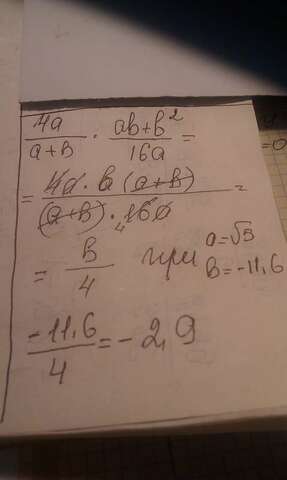 4a/(a+b) · (ab+b²)/16a =
= 4a·b(a+b)/((a+b)·₄16a) =
= b/4 при a=√5
b=-11,6
-11,6/4 = -2,9